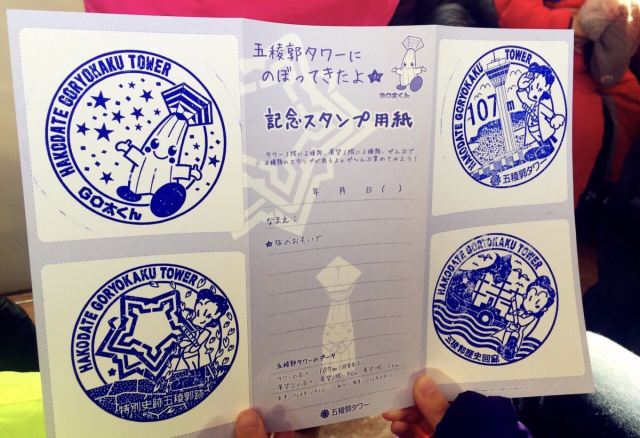 HAKODATE GORYOKAKU TOWER
GO太くん
HAKODATE GORYOKAKU TOWER
特別史跡五稜郭跡
五稜郭タワーに
のぼってきたよ☆
GO太くん
記念スタンプ用紙
タワー1階に2種類、展望2階に2種類、ぜんぶで
4種類のスタンプがあるよ。ぜ〜んぶ集めてみよう!
年 月 日( )
なまえ:
★旅のおもいで
五稜郭タワーのデータ
五稜郭タワー
HAKODATE GORYOKAKU TOWER
107m
五稜郭タワー
HAKODATE GORYOKAKU TOWER
五稜郭歴史回廊